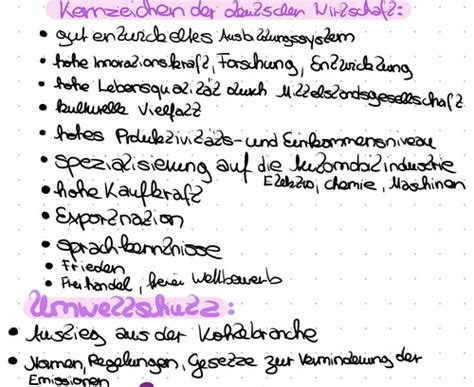 Kennzeichen der deutschen Wirtschaft:
• gut entwickeltes Ausbildungssystem
• hohe Innovationskraft, Forschung, Entwicklung
• hohe Lebensqualität durch Mittelstandsgesellschaft
• kulturelle Vielfalt
• hohes Produktivitäts- und Einkommensniveau
• Spezialisierung auf die Automobilindustrie
Elektro, Chemie, Maschinen
• hohe Kaufkraft
• Exportnation
• Sprachkenntnisse
• Frieden
• Freihandel, freier Wettbewerb
Umweltschutz:
• Ausstieg aus der Kohlebranche
• Normen, Regelungen, Gesetze zur Verminderung der
Emissionen